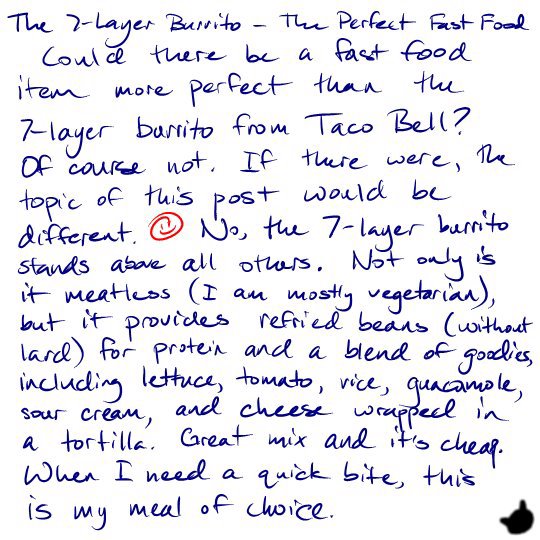 The 7-Layer Burrito - The Perfect Fast Food
Could there be a fast food
item more perfect than the
7-layer burrito from Taco Bell?
Of course not. If there were, the
topic of this post would be
different. No, the 7-layer burrito
stands above all others. Not only is
it meatless (I am mostly vegetarian),
but it provides refried beans (without
lard) for protein and a blend of goodies,
including lettuce, tomato, rice, guacamole,
sour cream, and cheese wrapped in
a tortilla. Great mix and it's cheap.
When I need a quick bite, this
is my meal of choice.